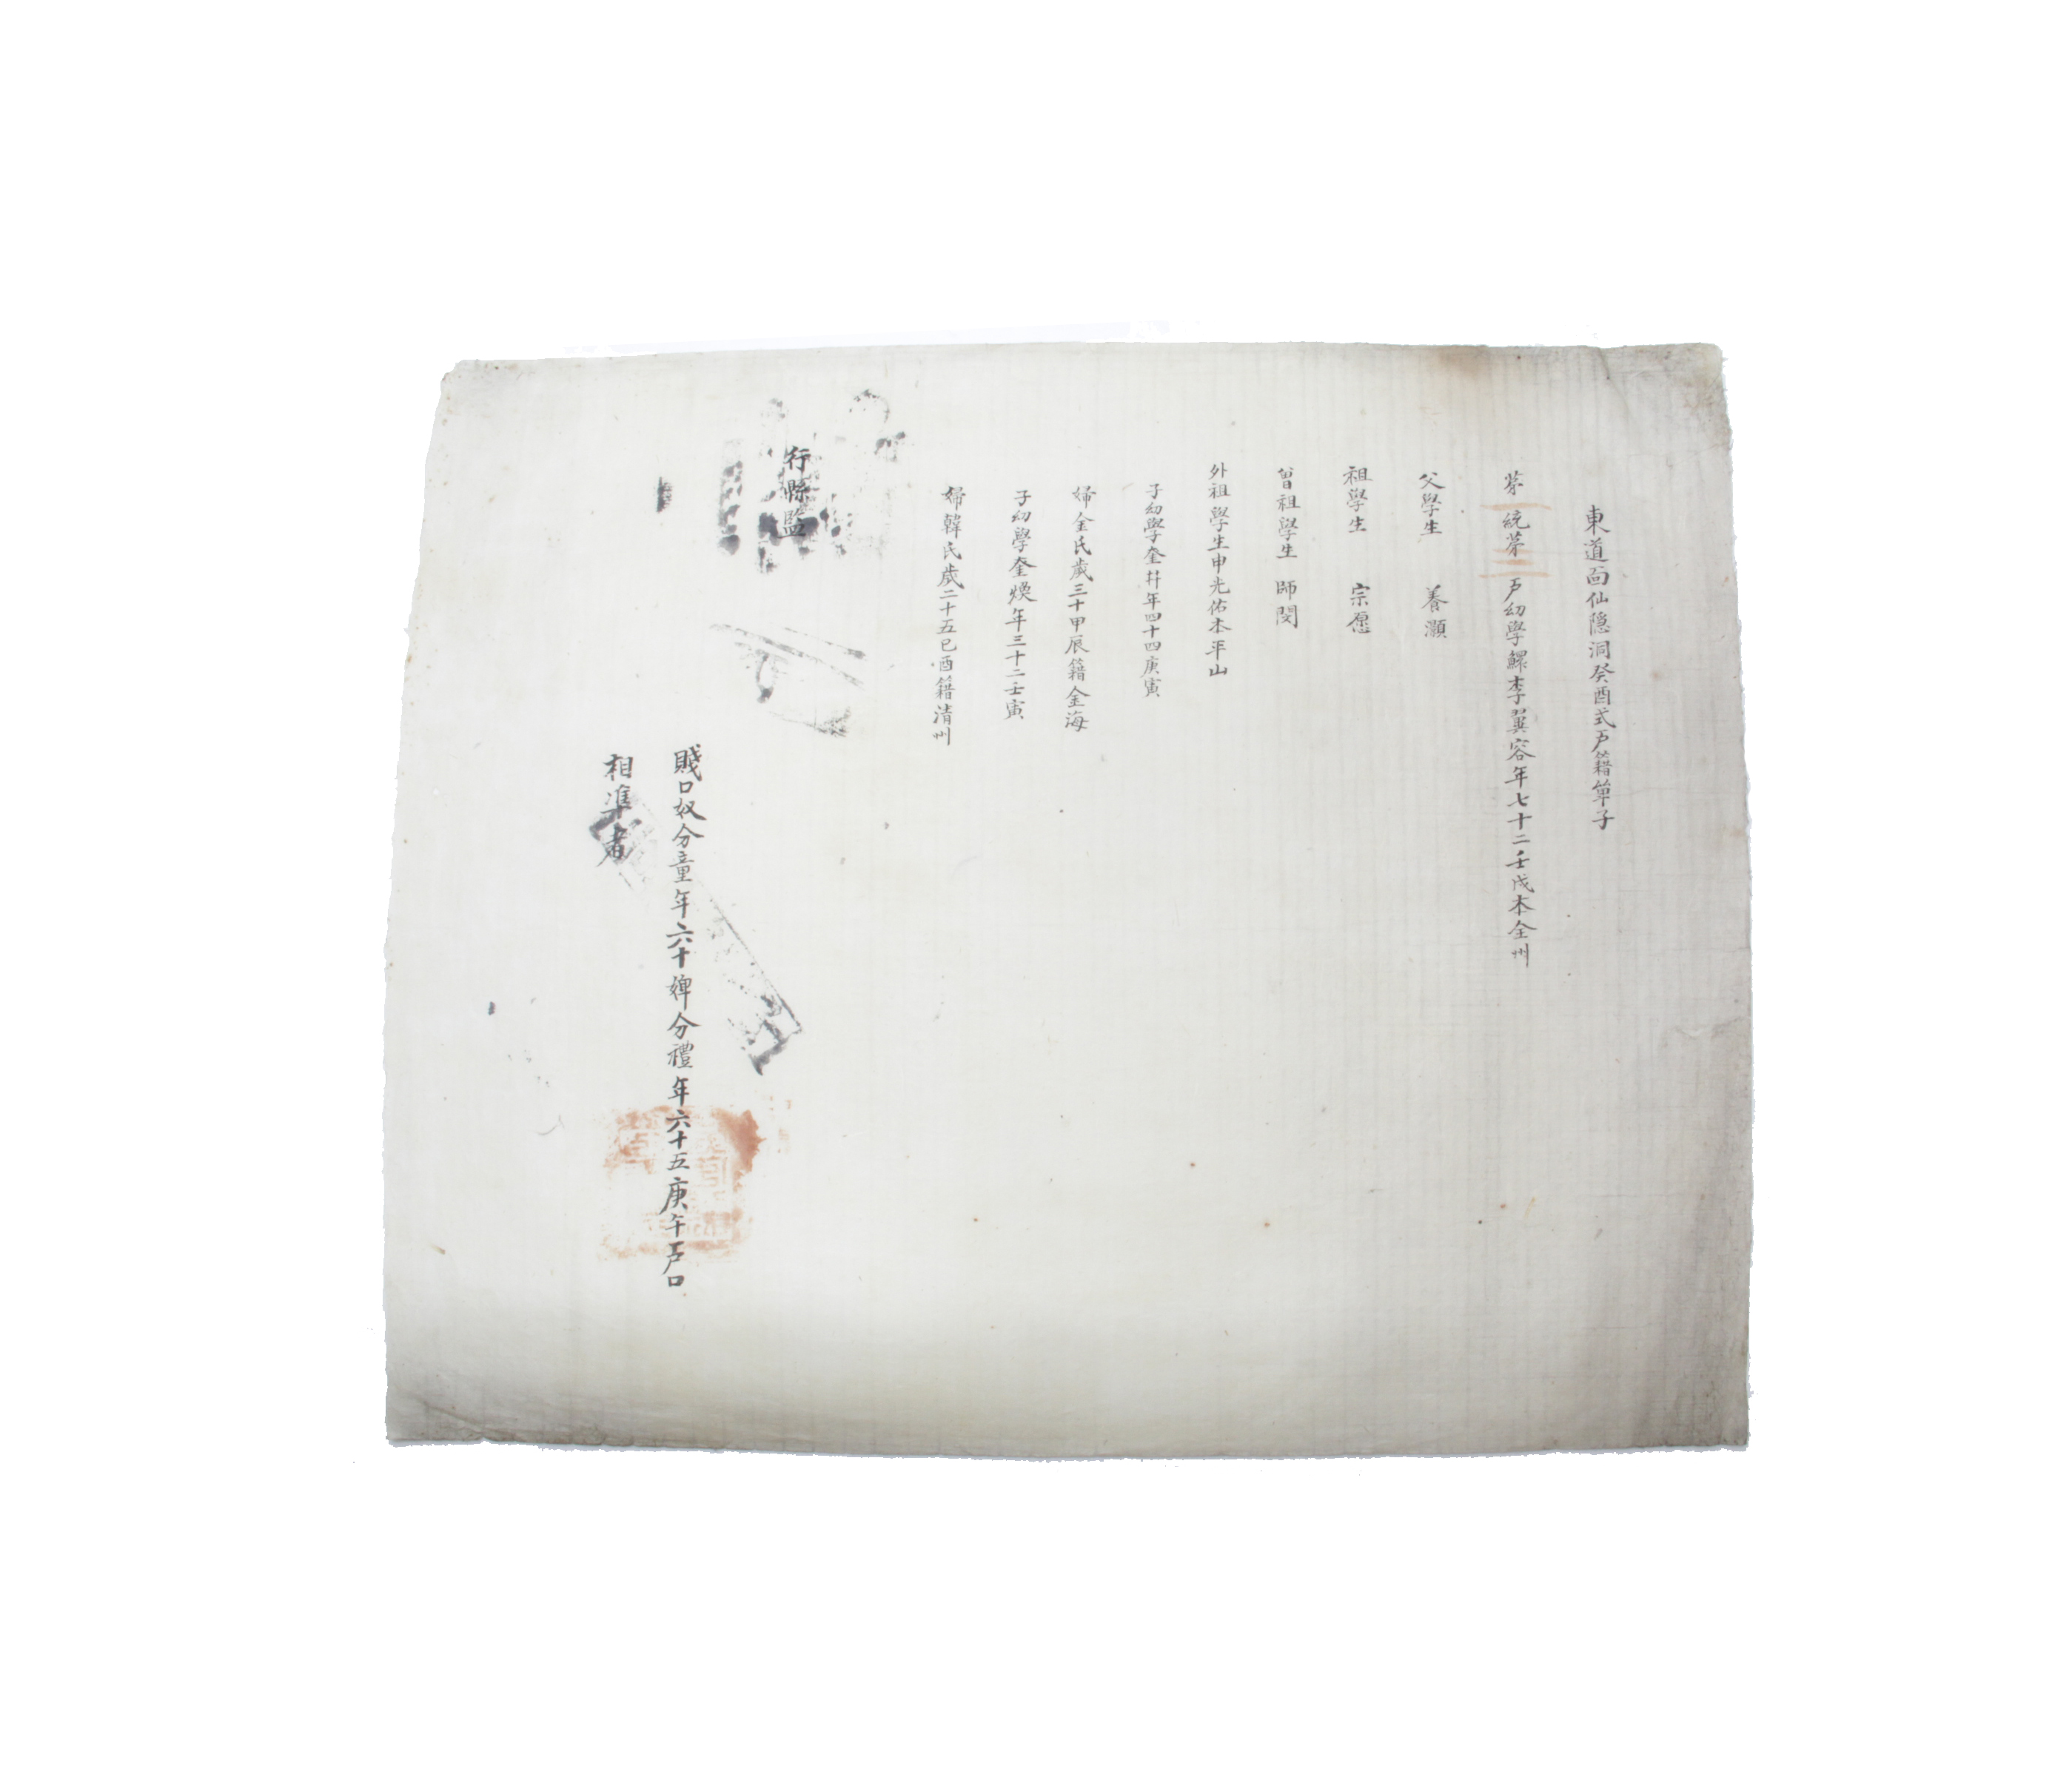 東道面仙隱洞癸酉式戶籍單子
第一統第三戶幼學鰥李翼容年七十二壬戌本全州
父學生 養灝
祖學生 宗愿
曾祖學生 師閔
外祖學生申光佑本平山
子幼學奎井年四十四庚寅
婦金氏歲三十甲辰籍金海
子幼學奎煥年三十二壬寅
婦韓氏歲二十五己酉籍清州
行縣監
賤口奴分童年六十婢分禮年六十五庚午戶口
相準者